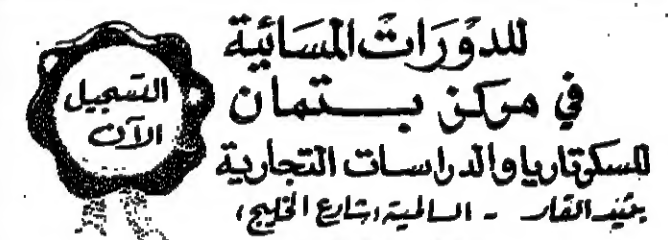 التسجيل
الآن
للدورات المسائية
في مركز بتمان
للسكرتاريا والدراسات التجارية
بنيد القار - السالمية، شارع الخليج،